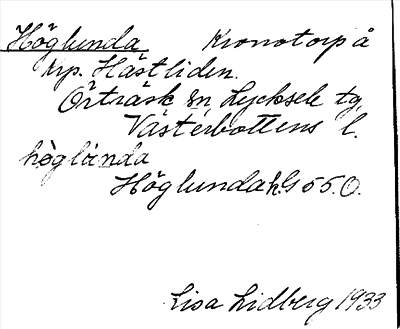 Höglunda Kronotorp å
krp. Hästliden.
Örträsk sn, Lycksele tg,
Västerbottens l.
hö̀glúnda
Höglunda h.G 55.O.
Lisa Lidberg 1933